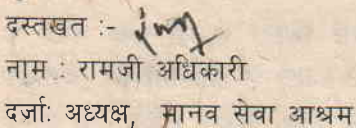 दस्तखत :-
नाम : रामजी अधिकारी
दर्जा: अध्यक्ष, मानव सेवा आश्रम